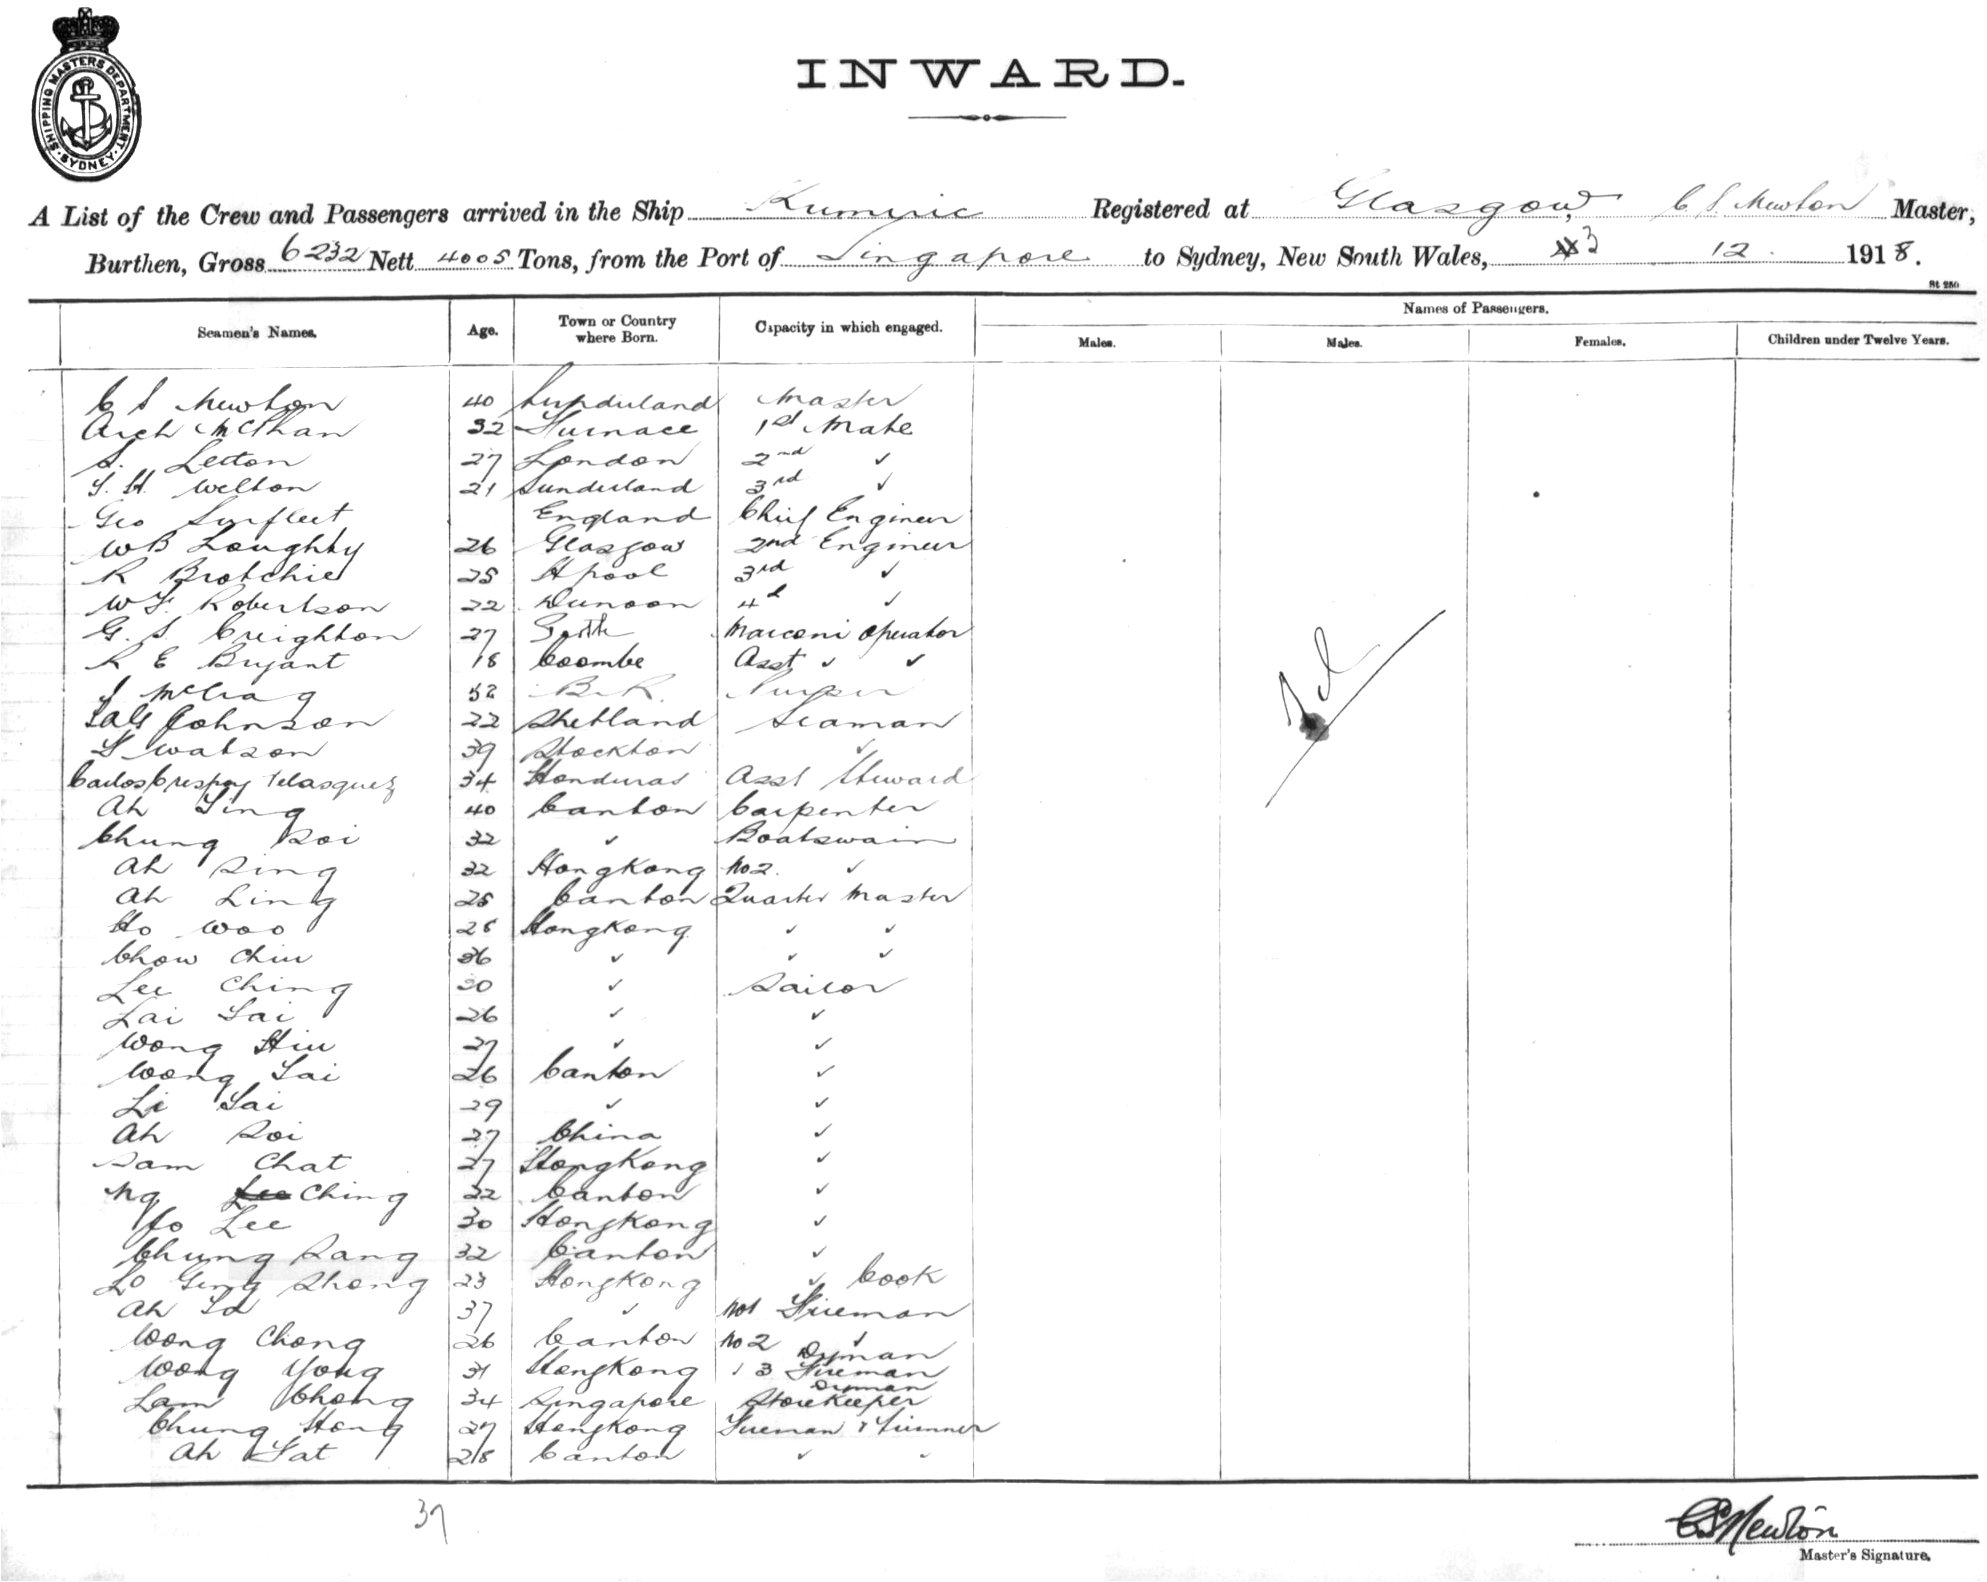 SHIPPING MASTERS DEPARTMENT
SYDNEY
INWARD.
A List of the Crew and Passengers arrived in the Ship Kumeric Registered at Glasgow, C S Newton Master,
Burthen, Gross 6232 Nett 4005 Tons, from the Port of Singapore to Sydney, New South Wales, 3 12. 1918.
St 280
Names of Passengers.
Seamen's Names. Age. Town or Country where Born. Capacity in which engaged. Males. Males. Females. Children under Twelve Years.
C S Newton 40 Sunderland Master
Arch McPhan 32 Furnace 1st Mate
S. Letton 27 London 2nd ✓
T. H. Welton 21 Sunderland 3rd ✓
Geo Surfleet England Chief Engineer
W B Loughty 26 Glasgow 2nd Engineer
R Brotchie 25 H pool 3rd ✓
W F. Robertson 22 Dunoon 4th ✓
G. S. Creighton 27 Marconi Operator
R E Bryant 18 Coombe Asst ✓ ✓
J McCrag 52 B. R. Purser
Johnson 22 Shetland Seaman
Watson 39 Stockton ✓
Carlos Crespoy Velasquez 34 Honduras Asst Steward
Ah Ting 40 Canton Carpenter
Chung Soi 32 ✓ Boatswain
Ah Sing 32 HongKong No 2. ✓
Ah Ling 28 Canton Quarter Master
Ho Woo 28 HongKong ✓ ✓
Chow Chiu 36 ✓ ✓ ✓
Lee Ching 30 ✓ Sailor
Lai Tai 26 ✓ ✓
Wong Hiu 27 ✓ ✓
Wong Tai 26 Canton ✓
Li Tai 29 ✓ ✓
Ah Soi 27 China ✓
Sam Chat 27 HongKong ✓
Ng Lee Ching 22 Canton ✓
Lee 30 HongKong ✓
Chung Sang 32 Canton ✓
Lo Geng Shong 23 HongKong ✓ Cook
Ah 37 ✓ No1 Fireman
Wong Chong 26 Canton No 2 ✓
Wong Yong 31 HongKong 3 Fireman
Lam Chong 34 Singapore Storekeeper
Chung Hong 27 HongKong Fireman & Trimmer
Ah Fat 28 Canton ✓ ✓
37
C S Newton
Master's Signature.